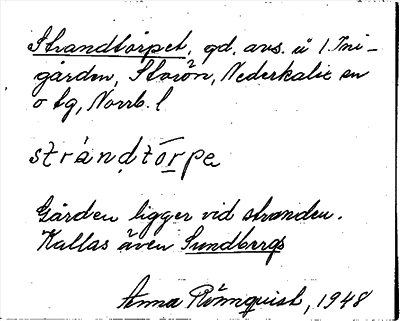 Strandtorpet, gd. avs. å 1. Ini-
gården, Storön, Nederkalix sn
o tg, Norrb. l
strandtorpe
Gården ligger vid stranden.
Kallas även Sundbergs
Anna Rönnquist, 1948